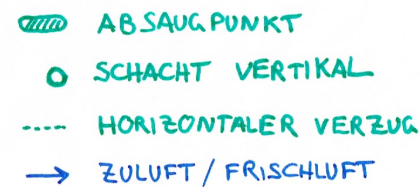 ABSAUGPUNKT
SCHACHT VERTIKAL
HORIZONTALER VERZUG
ZULUFT / FRISCHLUFT